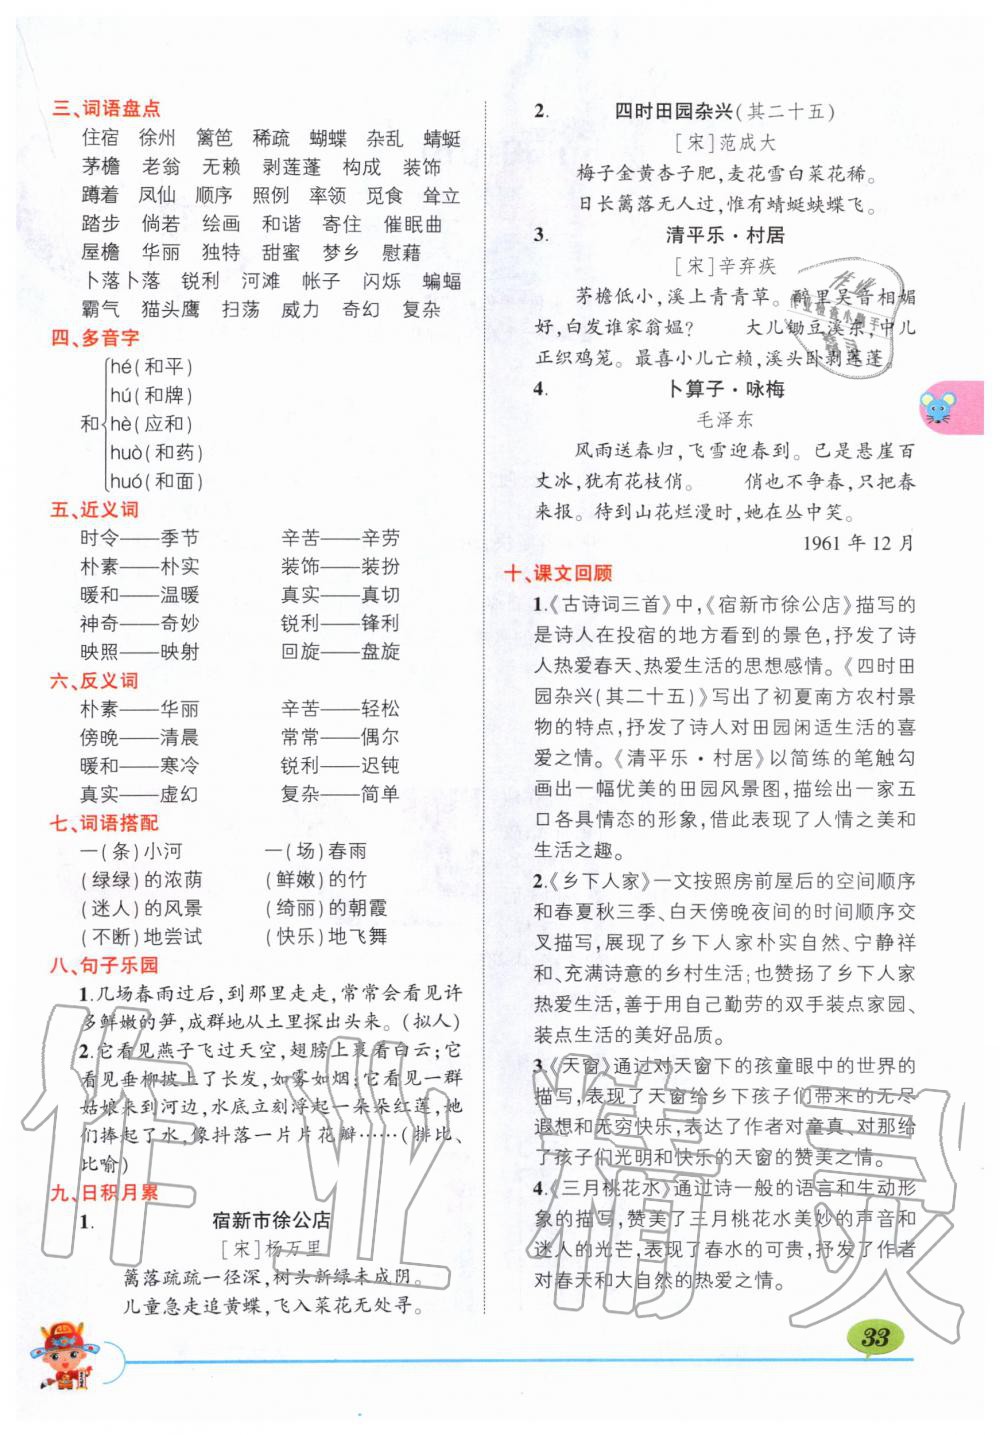 三、词语盘点
住宿 徐州 篱笆 稀疏 蝴蝶 杂乱 蜻蜓
茅檐 老翁 无赖 剥莲蓬 构成 装饰
蹲着 凤仙 顺序 照例 率领 觅食 耸立
踏步 倘若 绘画 和谐 寄住 催眠曲
屋檐 华丽 独特 甜蜜 梦乡 慰藉
卜落卜落 锐利 河滩 帐子 闪烁 蝙蝠
霸气 猫头鹰 扫荡 威力 奇幻 复杂
四、多音字
和
hé(和平)
hú(和牌)
hè(应和)
huò(和药)
huó(和面)
五、近义词
时令——季节 辛苦——辛劳
朴素——朴实 装饰——装扮
暖和——温暖 真实——真切
神奇——奇妙 锐利——锋利
映照——映射 回旋——盘旋
六、反义词
朴素——华丽 辛苦——轻松
傍晚——清晨 常常——偶尔
暖和——寒冷 锐利——迟钝
真实——虚幻 复杂——简单
七、词语搭配
一(条)小河 一(场)春雨
(绿绿)的浓荫 (鲜嫩)的竹
(迷人)的风景 (绮丽)的朝霞
(不断)地尝试 (快乐)地飞舞
八、句子乐园
1.几场春雨过后,到那里走走,常常会看见许
多鲜嫩的笋,成群地从土里探出头来。(拟人)
2.它看见燕子飞过天空,翅膀上裹着白云;它
看见垂柳披上了长发,如雾如烟;它看见一群
姑娘来到河边,水底立刻浮起一朵朵红莲,她
们捧起了水,像抖落一片片花瓣……(排比、
比喻)
九、日积月累
1. 宿新市徐公店
[宋]杨万里
篱落疏疏一径深,树头新绿未成阴。
儿童急走追黄蝶,飞入菜花无处寻。
2. 四时田园杂兴(其二十五)
[宋]范成大
梅子金黄杏子肥,麦花雪白菜花稀。
日长篱落无人过,惟有蜻蜓蛱蝶飞。
3. 清平乐·村居
[宋]辛弃疾
茅檐低小,溪上青青草。醉里吴音相媚
好,白发谁家翁媪? 大儿锄豆溪东,中儿
正织鸡笼。最喜小儿亡赖,溪头卧剥莲蓬。
4. 卜算子·咏梅
毛泽东
风雨送春归,飞雪迎春到。已是悬崖百
丈冰,犹有花枝俏。 俏也不争春,只把春
来报。待到山花烂漫时,她在丛中笑。
1961年12月
十、课文回顾
1.《古诗词三首》中,《宿新市徐公店》描写的
是诗人在投宿的地方看到的景色,抒发了诗
人热爱春天、热爱生活的思想感情。《四时田
园杂兴(其二十五)》写出了初夏南方农村景
物的特点,抒发了诗人对田园闲适生活的喜
爱之情。《清平乐·村居》以简练的笔触勾
画出一幅优美的田园风景图,描绘出一家五
口各具情态的形象,借此表现了人情之美和
生活之趣。
2.《乡下人家》一文按照房前屋后的空间顺序
和春夏秋三季、白天傍晚夜间的时间顺序交
叉描写,展现了乡下人家朴实自然、宁静祥
和、充满诗意的乡村生活;也赞扬了乡下人家
热爱生活,善于用自己勤劳的双手装点家园、
装点生活的美好品质。
3.《天窗》通过对天窗下的孩童眼中的世界的
描写,表现了天窗给乡下孩子们带来的无尽
遐想和无穷快乐,表达了作者对童真、对那给
了孩子们光明和快乐的天窗的赞美之情。
4.《三月桃花水》通过诗一般的语言和生动形
象的描写,赞美了三月桃花水美妙的声音和
迷人的光芒,表现了春水的可贵,抒发了作者
对春天和大自然的热爱之情。
33
作业精灵